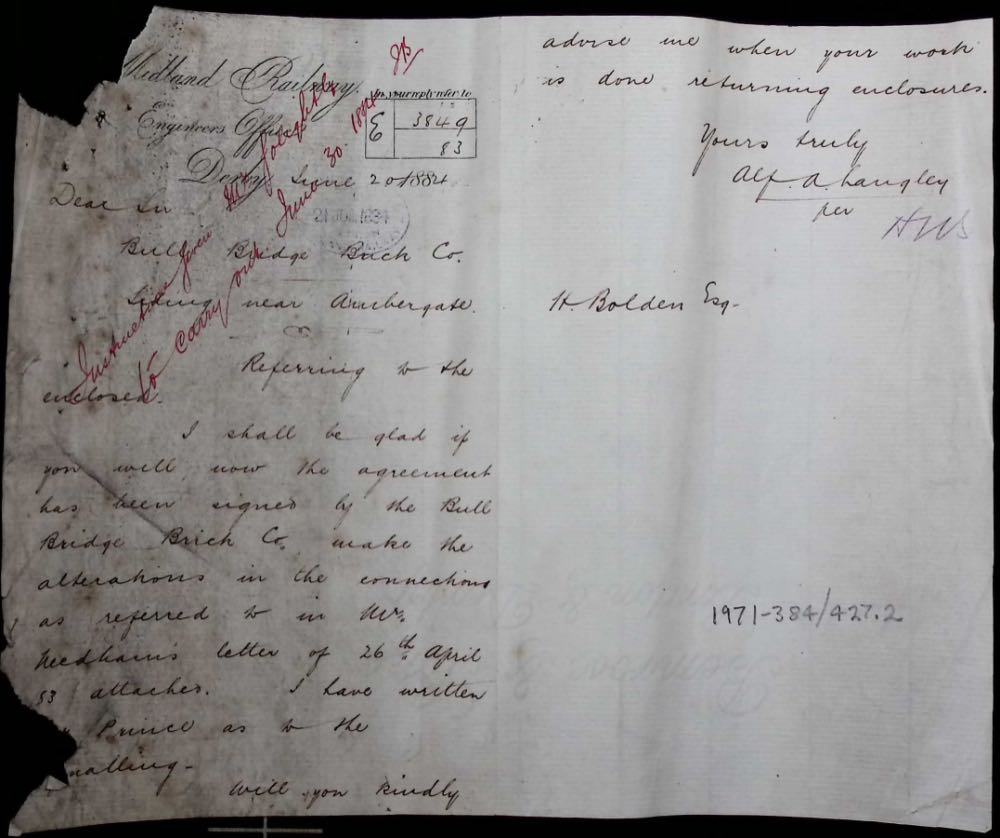 Midland Railway.
Engineers Office
Derby June 20 1884
In your reply refer to
E 3849
83
Instructions given
to carry out June 30 1884
21 JUN 1884
Dear Sir
Bull Bridge Brick Co.
Siding near Ambergate.
Referring to the
enclosed.
I shall be glad if
you will now the agreement
has been signed by the Bull
Bridge Brick Co. make the
alterations in the connections
as referred to in Mr.
Needham's letter of 26th April
83 attached. I have written
Prince as to the
nalling-
Will you kindly
advise me when your work
is done returning enclosures.
Yours truly
Alf. A. Langley
per
HWB
H. Bolden Esq-
1971-384/427.2